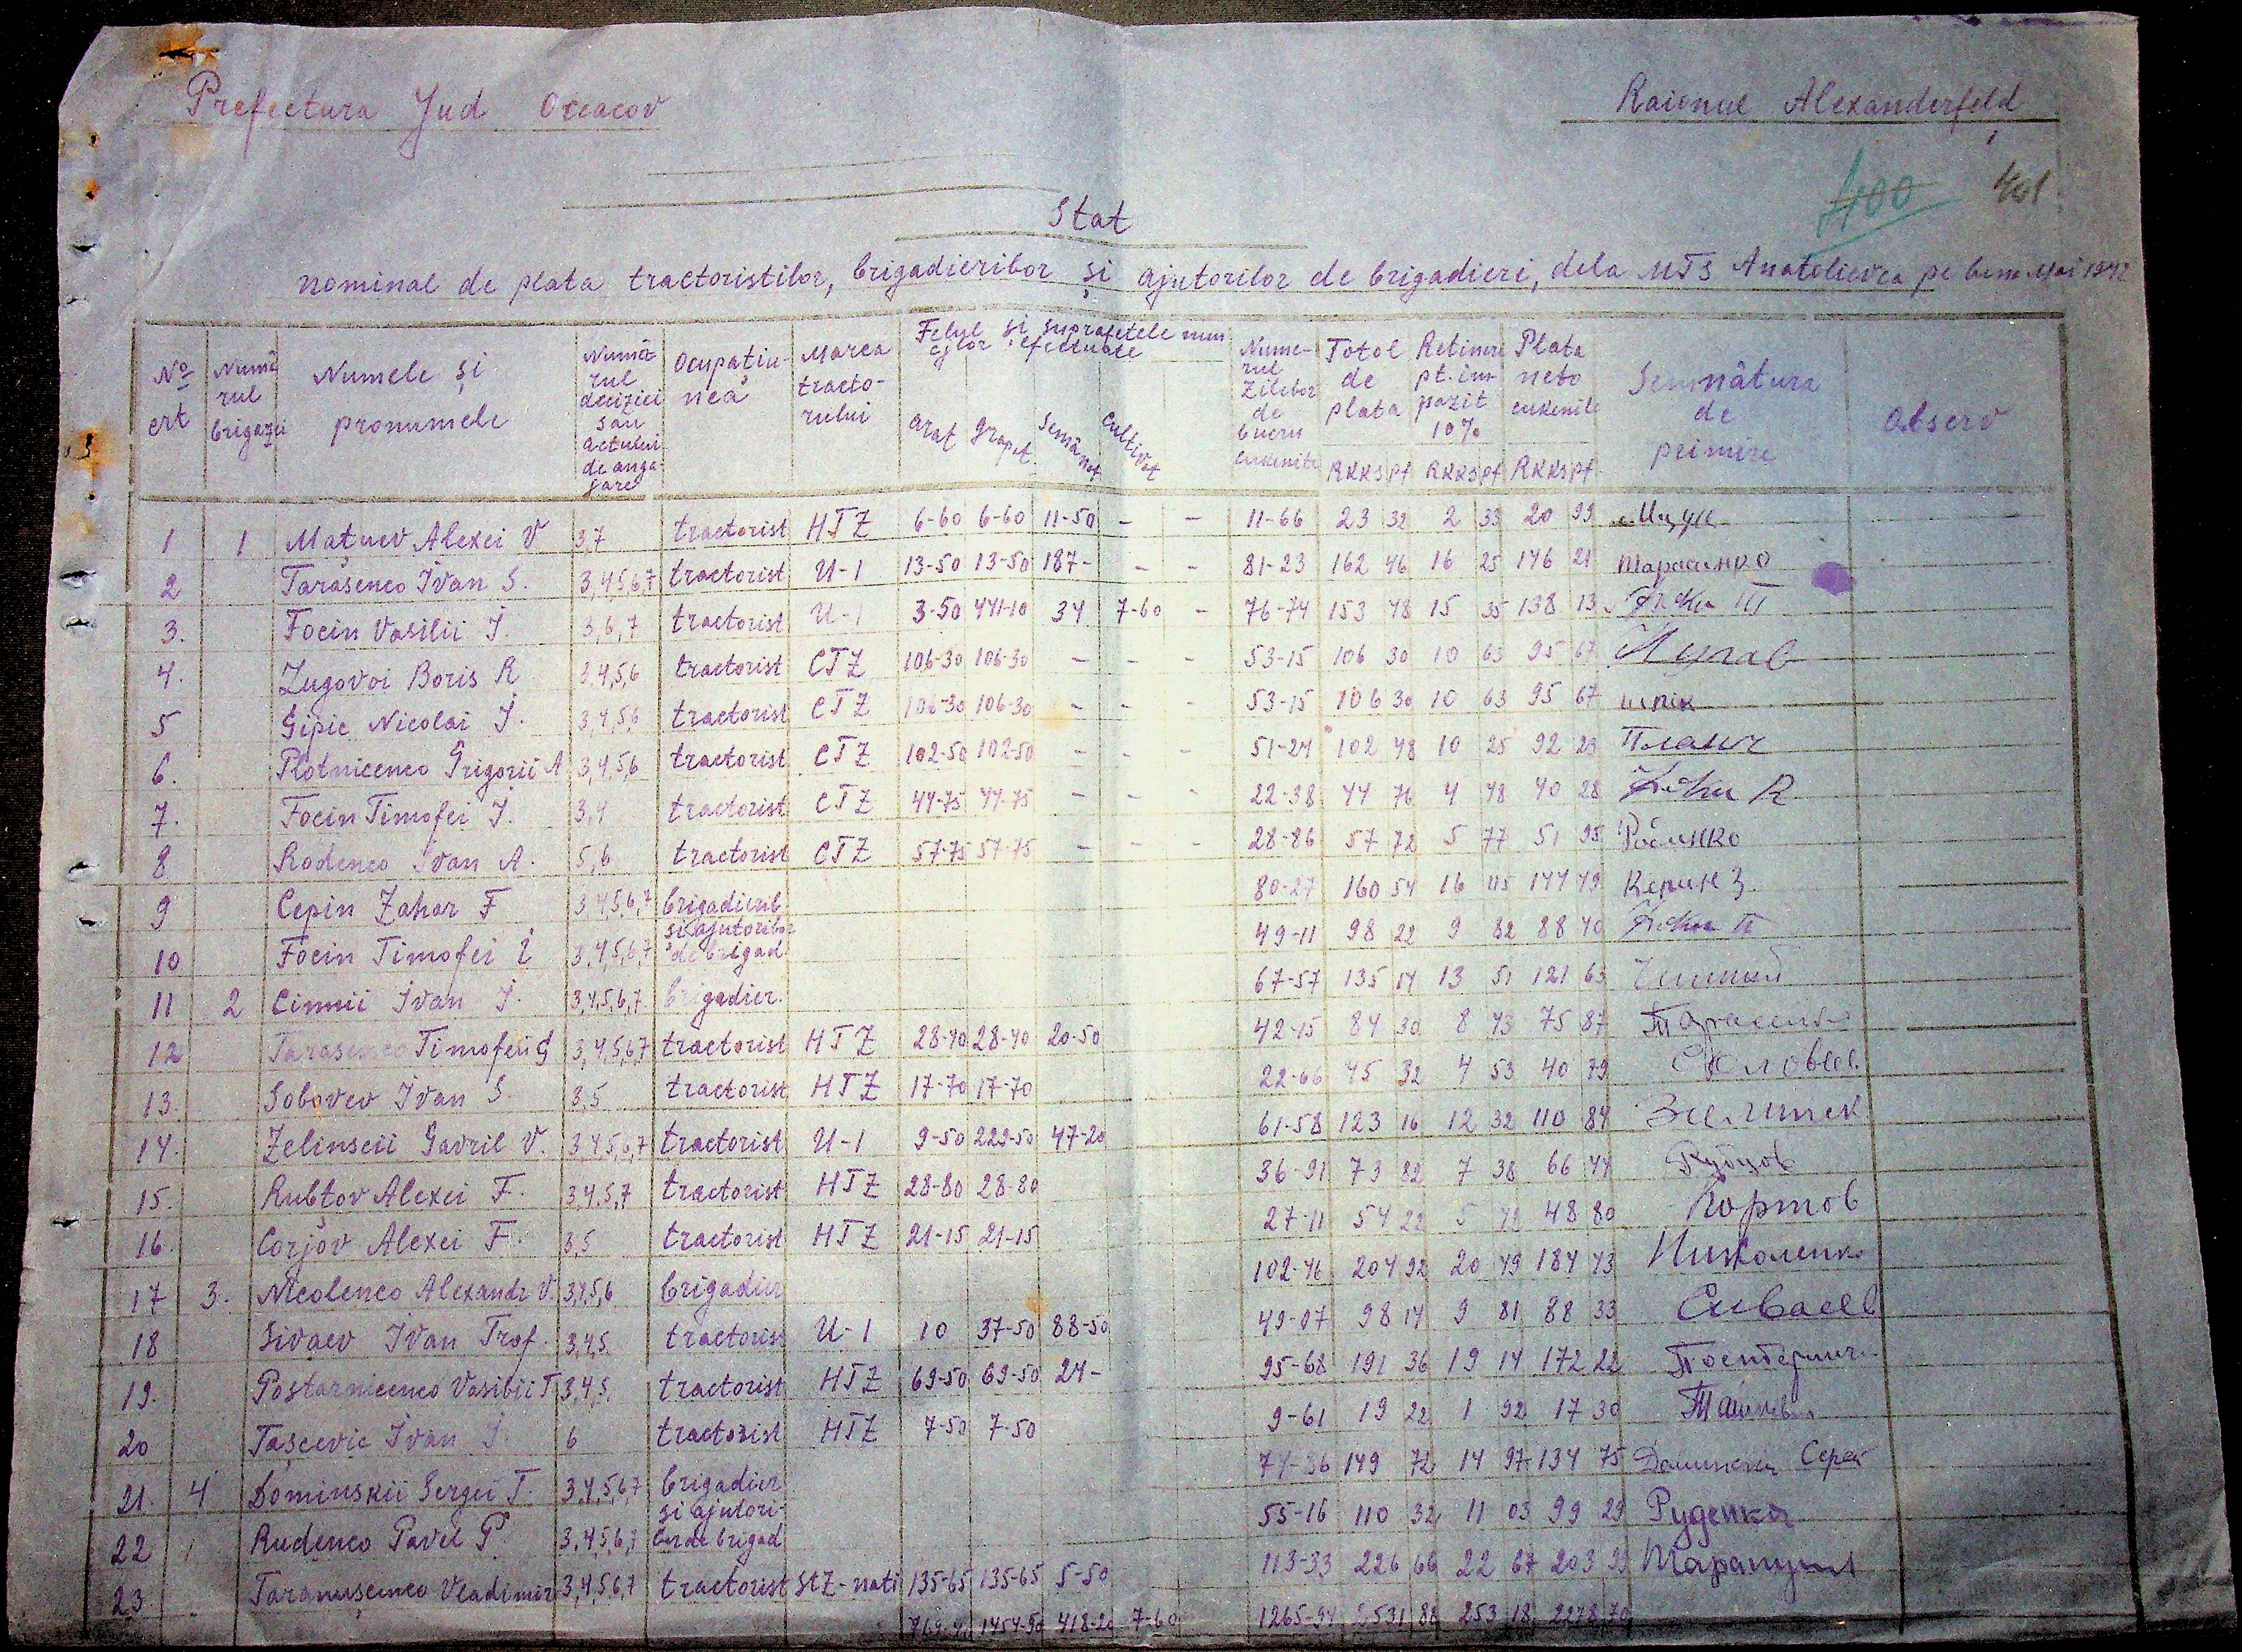 Prefectura Jud Oceacov
Raionul Alexanderfeld
400 401
Stat
nominal de plata tractoristilor, brigadierilor și ajutorilor de brigadieri, dela MTS Anatolievca pe luna Mai 1942
No crt | Numărul brigazii | Numele și pronumele | Numărul deciziei sau actului de angajare | Ocupațiunea | Marca tractorului | Felul și suprafetele muncilor efectuate arat grapat Semănat Cultivat | Numerul Zilelor de lucru | Total de plata RKKS pf | Retineri pt. impozit 10% RKKS pf | Plata neto RKKS pf | Semnătura de primire | Observ
1 1 Mațuev Alexei V 3,7 tractorist HTZ 6-60 6-60 11-50 - - 11-66 23 32 2 33 20 99
2 Tarasenco Ivan S. 3,4,5,6,7 tractorist U-1 13-50 13-50 187- - - 81-23 162 46 16 25 146 21 Тарасенко
3. Focin Vasilii I. 3,6,7 tractorist U-1 3-50 441-10 34 7-60 - 76-74 153 48 15 35 138 13
4. Lugovoi Boris R 3,4,5,6 tractorist CTZ 106-30 106-30 - - - 53-15 106 30 10 63 95 67
5 Șipic Nicolai I. 3,4,5,6 tractorist CTZ 106-30 106-30 - - - 53-15 106 30 10 63 95 67 шпік
6. Plotnicenco Grigorii A 3,4,5,6 tractorist CTZ 102-50 102-50 - - - 51-24 102 48 10 25 92 23
7. Focin Timofei I. 3,4 tractorist CTZ 44-75 44-75 - - - 22-38 44 76 4 48 40 28
8 Rodenco Ivan A. 5,6 tractorist CTZ 57-75 57-75 - - - 28-86 57 72 5 77 51 95
9 Cepin Zahar F 3,4,5,6,7 brigadieril 80-27 160 54 16 05 144 49
și ajutorilor
10 Focin Timofei I 3,4,5,6,7 de brigad 49-11 98 22 9 82 88 40
11 2 Cimnii Ivan I. 3,4,5,6,7. brigadier. 67-57 135 14 13 51 121 63
12 Tarasenco Timofei G 3,4,5,6,7 tractorist HTZ 28-40 28-40 20-50 42-15 84 30 8 43 75 87
13. Solovev Ivan S. 3,5 tractorist HTZ 17-70 17-70 22-66 45 32 4 53 40 79 Соловьев
14. Zelinscii Gavril V. 3,4,5,6,7 tractorist U-1 9-50 229-50 47-20 61-58 123 16 12 32 110 84
15. Rubțov Alexei F. 3,4,5,7 tractorist HTZ 28-80 28-80 36-91 73 82 7 38 66 44 Рубцов
16. Corjov Alexei F. 3,5 tractorist HTZ 21-15 21-15 27-11 54 22 5 42 48 80
17 3. Nicolenco Alexandr V. 3,4,5,6 brigadier 102-46 204 92 20 49 184 43 Николенко
18 Sivaev Ivan Trof. 3,4,5. tractorist U-1 10 37-50 88-50 49-07 98 14 9 81 88 33 Сиваев
19. Postarnicenco Vasilii T 3,4,5. tractorist HTZ 69-50 69-50 24- 95-68 191 36 19 14 172 22
20 Tașcevic Ivan I. 6 tractorist HTZ 7-50 7-50 9-61 19 22 1 92 17 30
21. 4 Dominskii Sergei T. 3,4,5,6,7 brigadier 74-86 149 72 14 97 134 75
și ajutori-
22 Rudenco Pavel P. 3,4,5,6,7 lor de brigad 55-16 110 32 11 03 99 29 Руденко
23 Taranușcenco Vladimir 3,4,5,6,7 tractorist StZ-nati 135-65 135-65 5-50 113-33 226 66 22 67 203 99
1454-50 418-20 7-60 1265-94 2531 88 253 18 2278 70